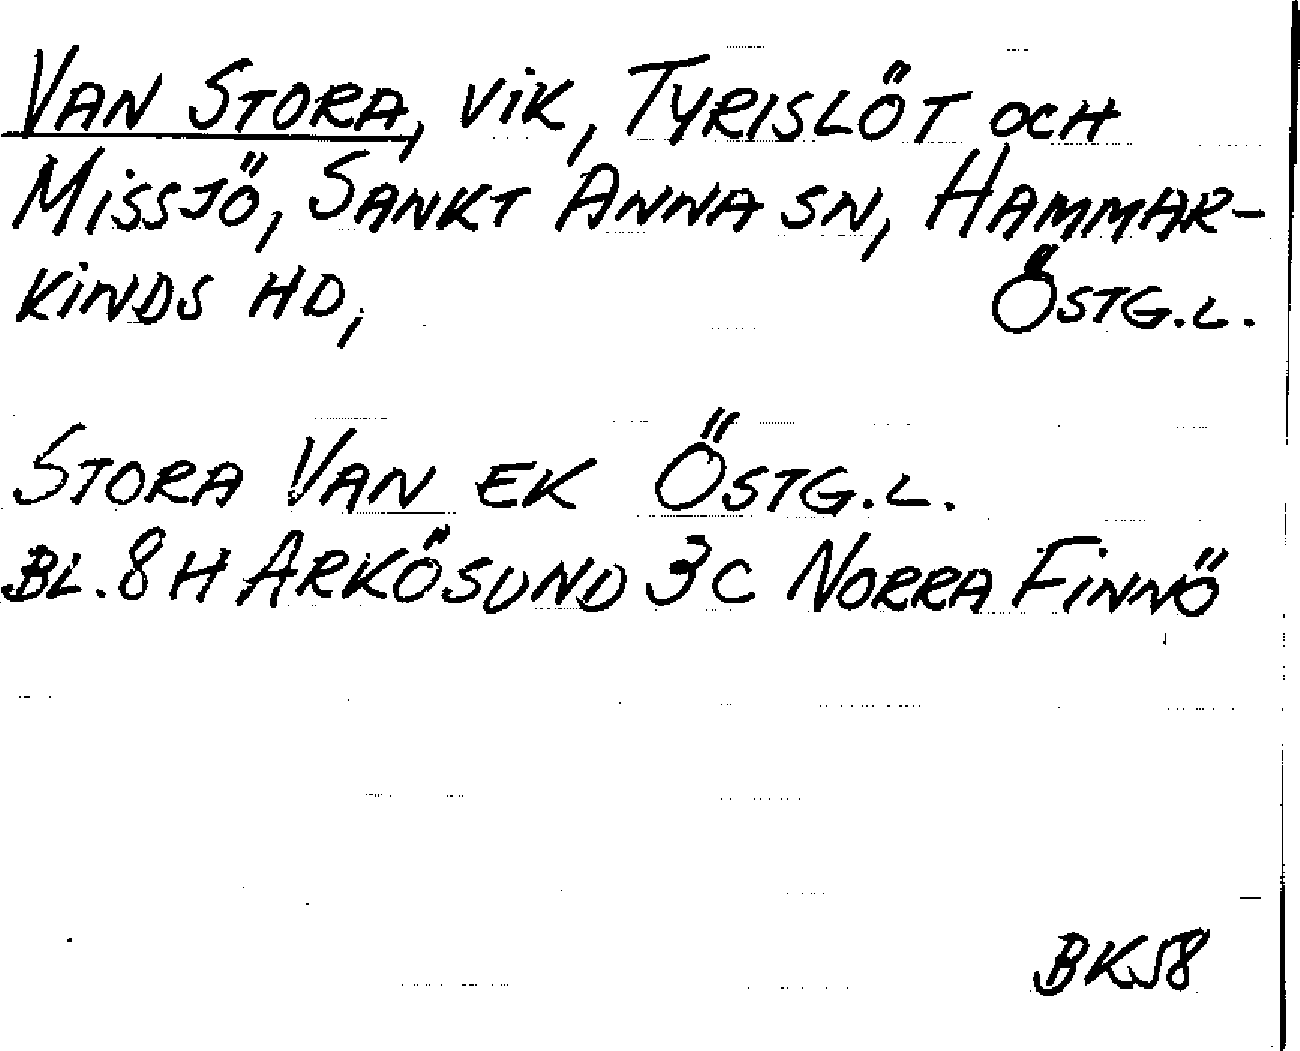 VAN STORA, VIK, TYRISLÖT OCH
MISSJÖ, SANKT ANNA SN, HAMMAR-
KINDS HD, ÖSTG.L.
STORA VAN EK ÖSTG.L.
BL. 8 H ARKÖSUND 3 C NORRA FINNÖ
BK58